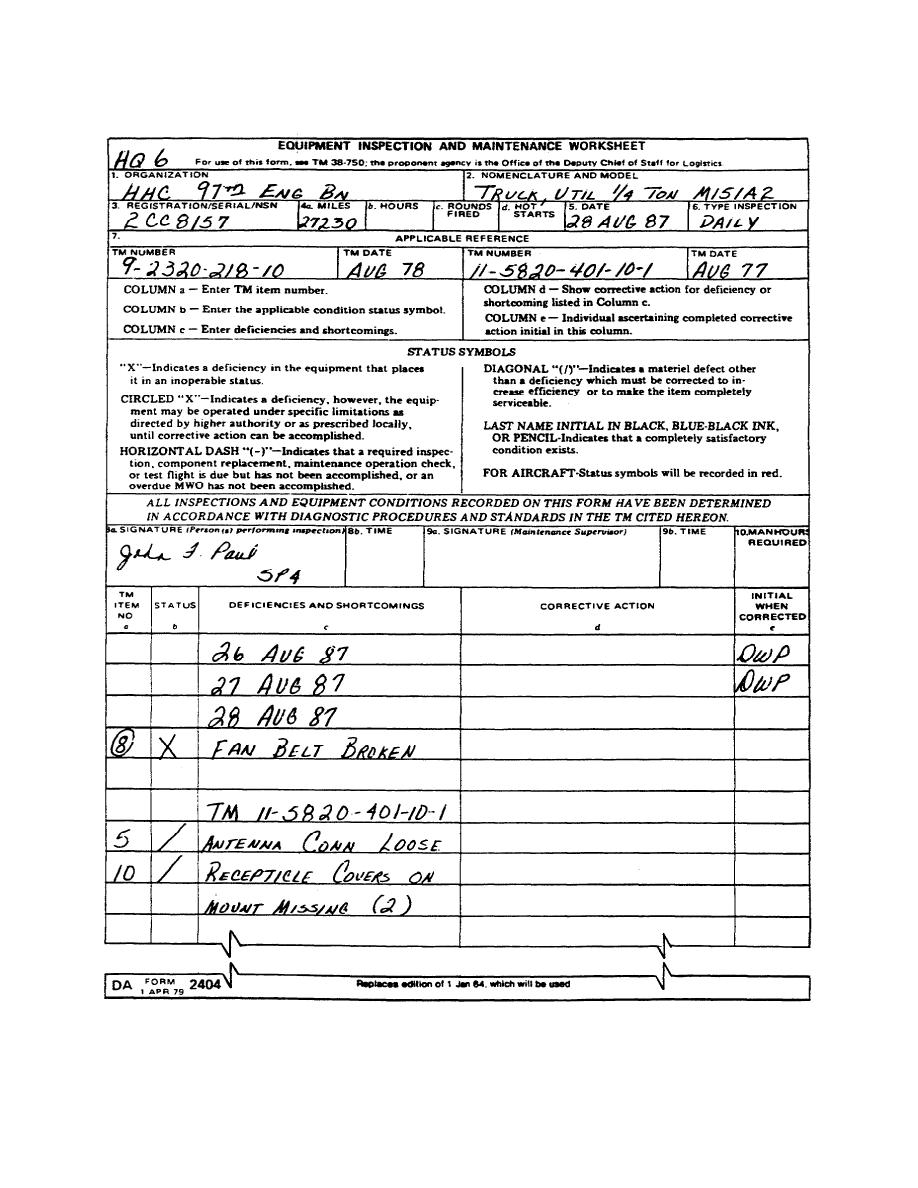 EQUIPMENT INSPECTION AND MAINTENANCE WORKSHEET
HQ 6 For use of this form, see TM 38-750; the proponent agency is the Office of the Deputy Chief of Staff for Logistics
1. ORGANIZATION
HHC 97TH ENG BN
2. NOMENCLATURE AND MODEL
TRUCK, UTIL 1/4 TON M151A2
3. REGISTRATION/SERIAL/NSN
2CC8157
4a. MILES
27230
b. HOURS
c. ROUNDS FIRED
d. HOT STARTS
5. DATE
28 AUG 87
6. TYPE INSPECTION
DAILY
7. APPLICABLE REFERENCE
TM NUMBER
9-2320-218-10
TM DATE
AUG 78
TM NUMBER
11-5820-401-10-1
TM DATE
AUG 77
COLUMN a — Enter TM item number.
COLUMN b — Enter the applicable condition status symbol.
COLUMN c — Enter deficiencies and shortcomings.
COLUMN d — Show corrective action for deficiency or
shortcoming listed in Column c.
COLUMN e — Individual ascertaining completed corrective
action initial in this column.
STATUS SYMBOLS
"X"—Indicates a deficiency in the equipment that places
it in an inoperable status.
CIRCLED "X"—Indicates a deficiency, however, the equip-
ment may be operated under specific limitations as
directed by higher authority or as prescribed locally,
until corrective action can be accomplished.
HORIZONTAL DASH "(-)"—Indicates that a required inspec-
tion, component replacement, maintenance operation check,
or test flight is due but has not been accomplished, or an
overdue MWO has not been accomplished.
DIAGONAL "(/)"—Indicates a materiel defect other
than a deficiency which must be corrected to in-
crease efficiency or to make the item completely
serviceable.
LAST NAME INITIAL IN BLACK, BLUE-BLACK INK,
OR PENCIL-Indicates that a completely satisfactory
condition exists.
FOR AIRCRAFT-Status symbols will be recorded in red.
ALL INSPECTIONS AND EQUIPMENT CONDITIONS RECORDED ON THIS FORM HAVE BEEN DETERMINED
IN ACCORDANCE WITH DIAGNOSTIC PROCEDURES AND STANDARDS IN THE TM CITED HEREON.
8a. SIGNATURE (Person(s) performing inspection)
John F. Paul
SP4
8b. TIME
9a. SIGNATURE (Maintenance Supervisor)
9b. TIME
10. MANHOURS
REQUIRED
TM
ITEM
NO
a
STATUS
b
DEFICIENCIES AND SHORTCOMINGS
c
CORRECTIVE ACTION
d
INITIAL
WHEN
CORRECTED
e
26 AUG 87 DWP
27 AUG 87 DWP
28 AUG 87
8 X FAN BELT BROKEN
TM 11-5820-401-10-1
5 / ANTENNA CONN LOOSE
10 / RECEPTICLE COVERS ON
MOUNT MISSING (2)
DA FORM 2404
1 APR 79
Replaces edition of 1 Jan 64, which will be used